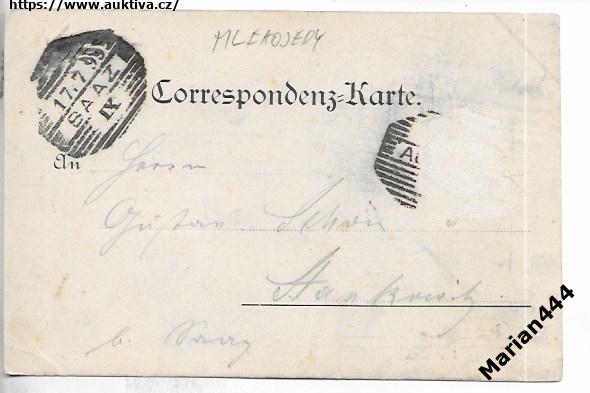 https://www.auktiva.cz/
MLEKOJEDY
17.7.99
SAAZ
IX
Correspondenz=Karte.
An Herrn
Gustav Schön
Stankowitz
b. Saaz
Marian444